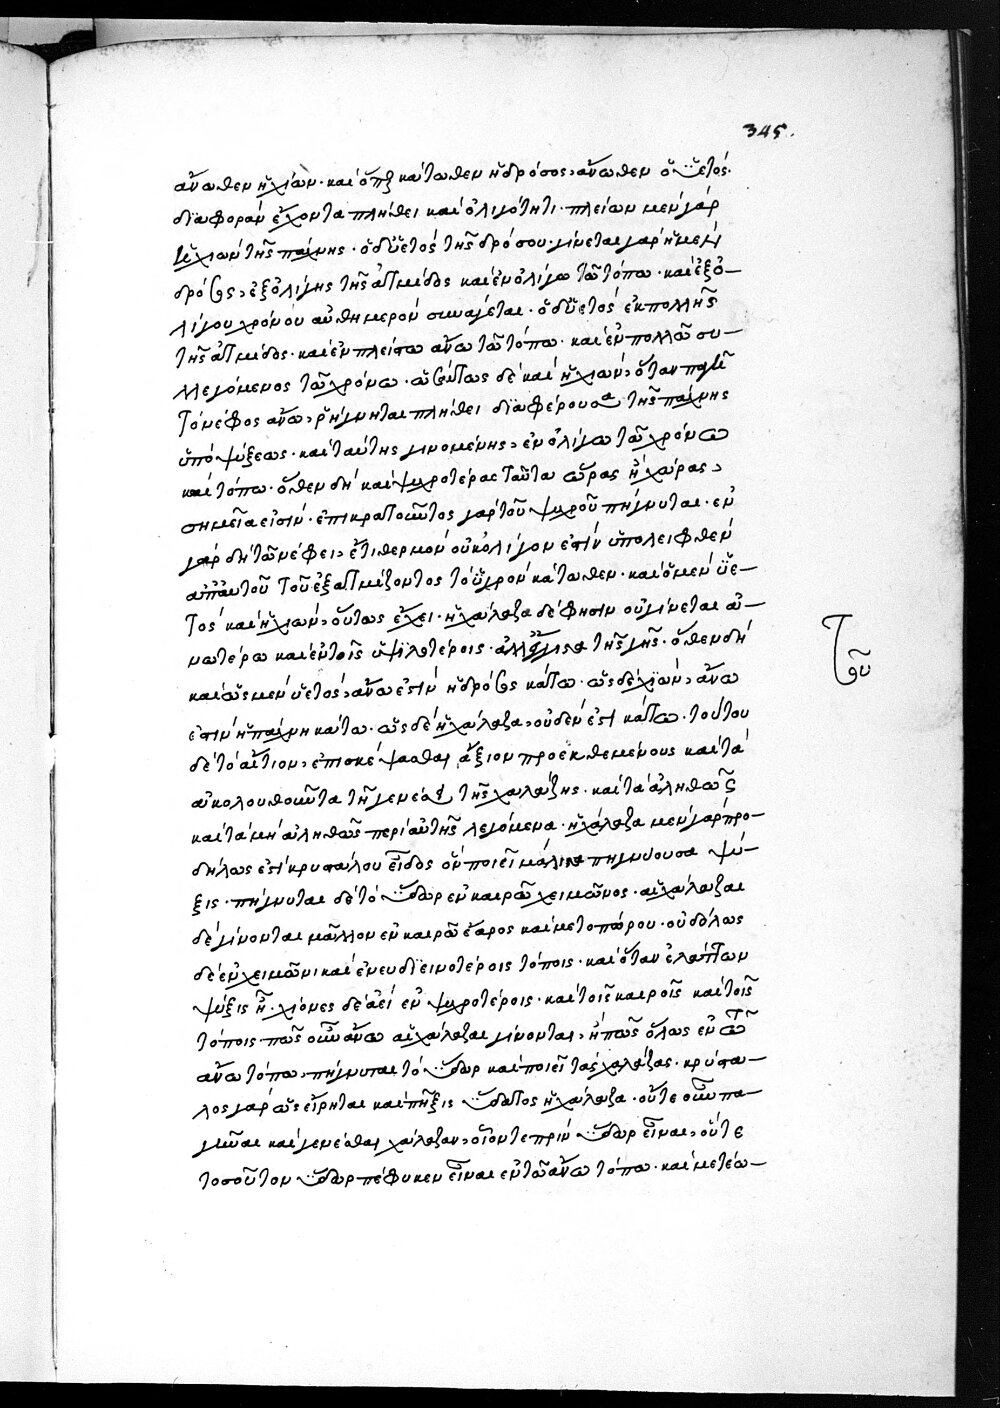 345.
ἄνωθεν ἡ χιών· καὶ ὅπερ κάτωθεν ἡ δρόσος, ἄνωθεν ὁ ὑετός·
διαφορὰν ἔχοντα πλήθει καὶ ὀλιγότητι· πλείων μὲν γὰρ
ἡ χιὼν τῆς πάχνης· ὁ δ' ὑετὸς τῆς δρόσου· γίνεται γὰρ ἡ μὲν
δρόσος, ἐξ ὀλίγης τῆς ἀτμίδος καὶ ἐν ὀλίγω τῶ τόπω· καὶ ἐξ ὀ–
λίγου χρόνου αὐθημερὸν συναγέται· ὁ δ' ὑετὸς ἐκ πολλῆς
τῆς ἀτμίδος· καὶ ἐν πλείοω ἄνω τῶ τόπω· καὶ ἐν πολλῶ συ–
λλεγόμενος τῶ χρόνω· ὡσαύτως δὲ καὶ ἡ χιών, ὅταν παγῆ
τὸ νέφος ἄνω, ῥήγνηται πλήθει διαφέρουσα τῆς πάχνης
ὑπὸ ψύξεως· καὶ ταύτης γινομένης, ἐν ὀλίγω τῶ χρόνω
καὶ τόπω· ὅθεν δὴ καὶ ψυχροτέρας ταῦτα ὥρας ἢ χώρας,
σημεῖα εἰσίν· ἐπικρατοῦντος γὰρ τοῦ ψυχροῦ πήγνυται· ἐν
γὰρ δὴ τῶ νέφει, ἔτι θερμὸν οὐκ ὀλίγον ἐστὶν ὑπολειφθὲν
ἀπ' αὐτοῦ τοῦ ἐξατμίζοντος τὸ ὑγρὸν κάτωθεν· καὶ ὁ μὲν ὑε–
τὸς καὶ ἡ χιών, οὕτως ἔχει· ἡ χάλαζα δέ φησιν οὐ γίνεται ἀ–
νωτέρω καὶ ἐν τοῖς ὑψηλοτέροις· ἀλλ' ἔγγιστα τῆς γῆς· ὅθεν δὴ
καὶ ὡς μὲν ὑετός, ἄνω ἐστὶν ἡ δρόσος κάτω· ὡς δὲ χιών, ἄνω
ἐστὶν ἡ πάχνη κάτω· ὡς δὲ ἡ χάλαζα, οὐδέν ἐστι κάτω· τούτου
δὲ τὸ αἴτιον, ἐπισκέψασθαι ἄξιον προεκθεμένους καὶ τὰ
ἀκολουθοῦντα τῆ γενέσει τῆς χαλάζης· καὶ τὰ ἀληθῶς
καὶ τὰ μὴ ἀληθῶς περὶ αὐτῆς λεγόμενα· ἡ χάλαζα μὲν γὰρ προ–
δήλως ἐστὶ κρυστάλου εἶδος ὃν ποιεῖ μάλιστα πηγνύουσα ψύ–
ξις· πήγνυται δὲ τὸ ὕδωρ ἐν καιρῶ χειμῶνος· αἱ χάλαζαι
δὲ γίνονται μᾶλλον ἐν καιρῶ ἔαρος καὶ μετοπώρου· οὐδ' ὅλως
δὲ ἐν χειμῶνι καὶ ἐν εὐδιεινοτέροις τόποις· καὶ ὅταν ἐλάττων
ψύξις ἦ· χιόνες δὲ ἀεὶ ἐν ψυχροτέροις· καὶ τοῖς καιροῖς καὶ τοῖς
τόποις· πῶς οὖν ἄνω αἱ χάλαζαι γίνονται, ἢ πῶς ὅλως ἐν τῶ
ἄνω τόπω, πήγνυται τὸ ὕδωρ καὶ ποιεῖ τὰς χαλάζας· κρύστα–
λος γὰρ ὡς εἴρηται καὶ πῆξις ὕδατος ἡ χάλαζα· οὔτε οὖν πα–
γῆναι καὶ γενέσθαι χάλαζαν, οἷόν τε πρὶν ὕδωρ εἶναι, οὔτε
τοσοῦτον ὕδωρ πέφυκεν εἶναι ἐν τῶ ἄνω τόπω· καὶ μετέω–